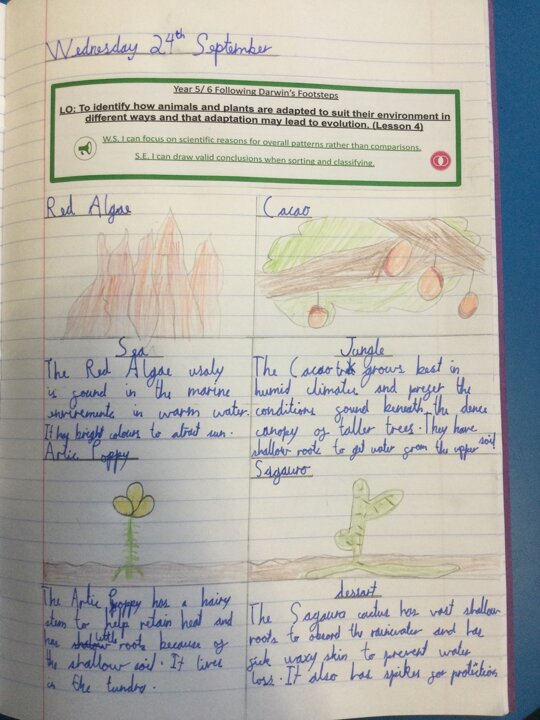 Wednesday 24th September
Year 5/ 6 Following Darwin's Footsteps
LO: To identify how animals and plants are adapted to suit their environment in
different ways and that adaptation may lead to evolution. (Lesson 4)
W.S. I can focus on scientific reasons for overall patterns rather than comparisons.
S.E. I can draw valid conclusions when sorting and classifying.
Red Algae
Sea
The Red Algae usaly
is found in the marine
envirements in warm water.
It hes bright colours to atract sun.
Cacao
Jungle
The Cacao grows best in
humid climates and prefer the
conditions found beneath the dence
canopy of taller trees. They have
shallow roots to get water from the upper soil
Artic Poppy
The Artic Poppy has a hairy
stem to help retain heat and
has little roots because of
the shallow soil. It lives
in the tundra.
Sagauro
dessart
The Sagauro cactus has vast shallow
roots to absord the rainwater and has
fick waxy skin to prevent water
loss. It also has spikes for protection